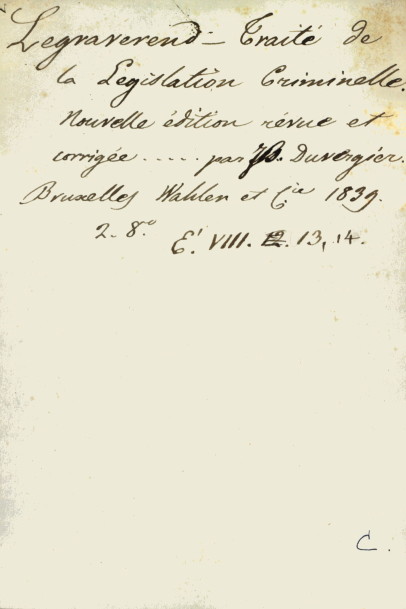 Legraverend – Traité de
la Legislation Criminelle.
Nouvelle édition révue et
corrigée ..... par JB. Duvergier.
Bruxelles Wahlen et C.ie 1839.
2. 8.o
E! VIII. 12. 13, 14.
C.